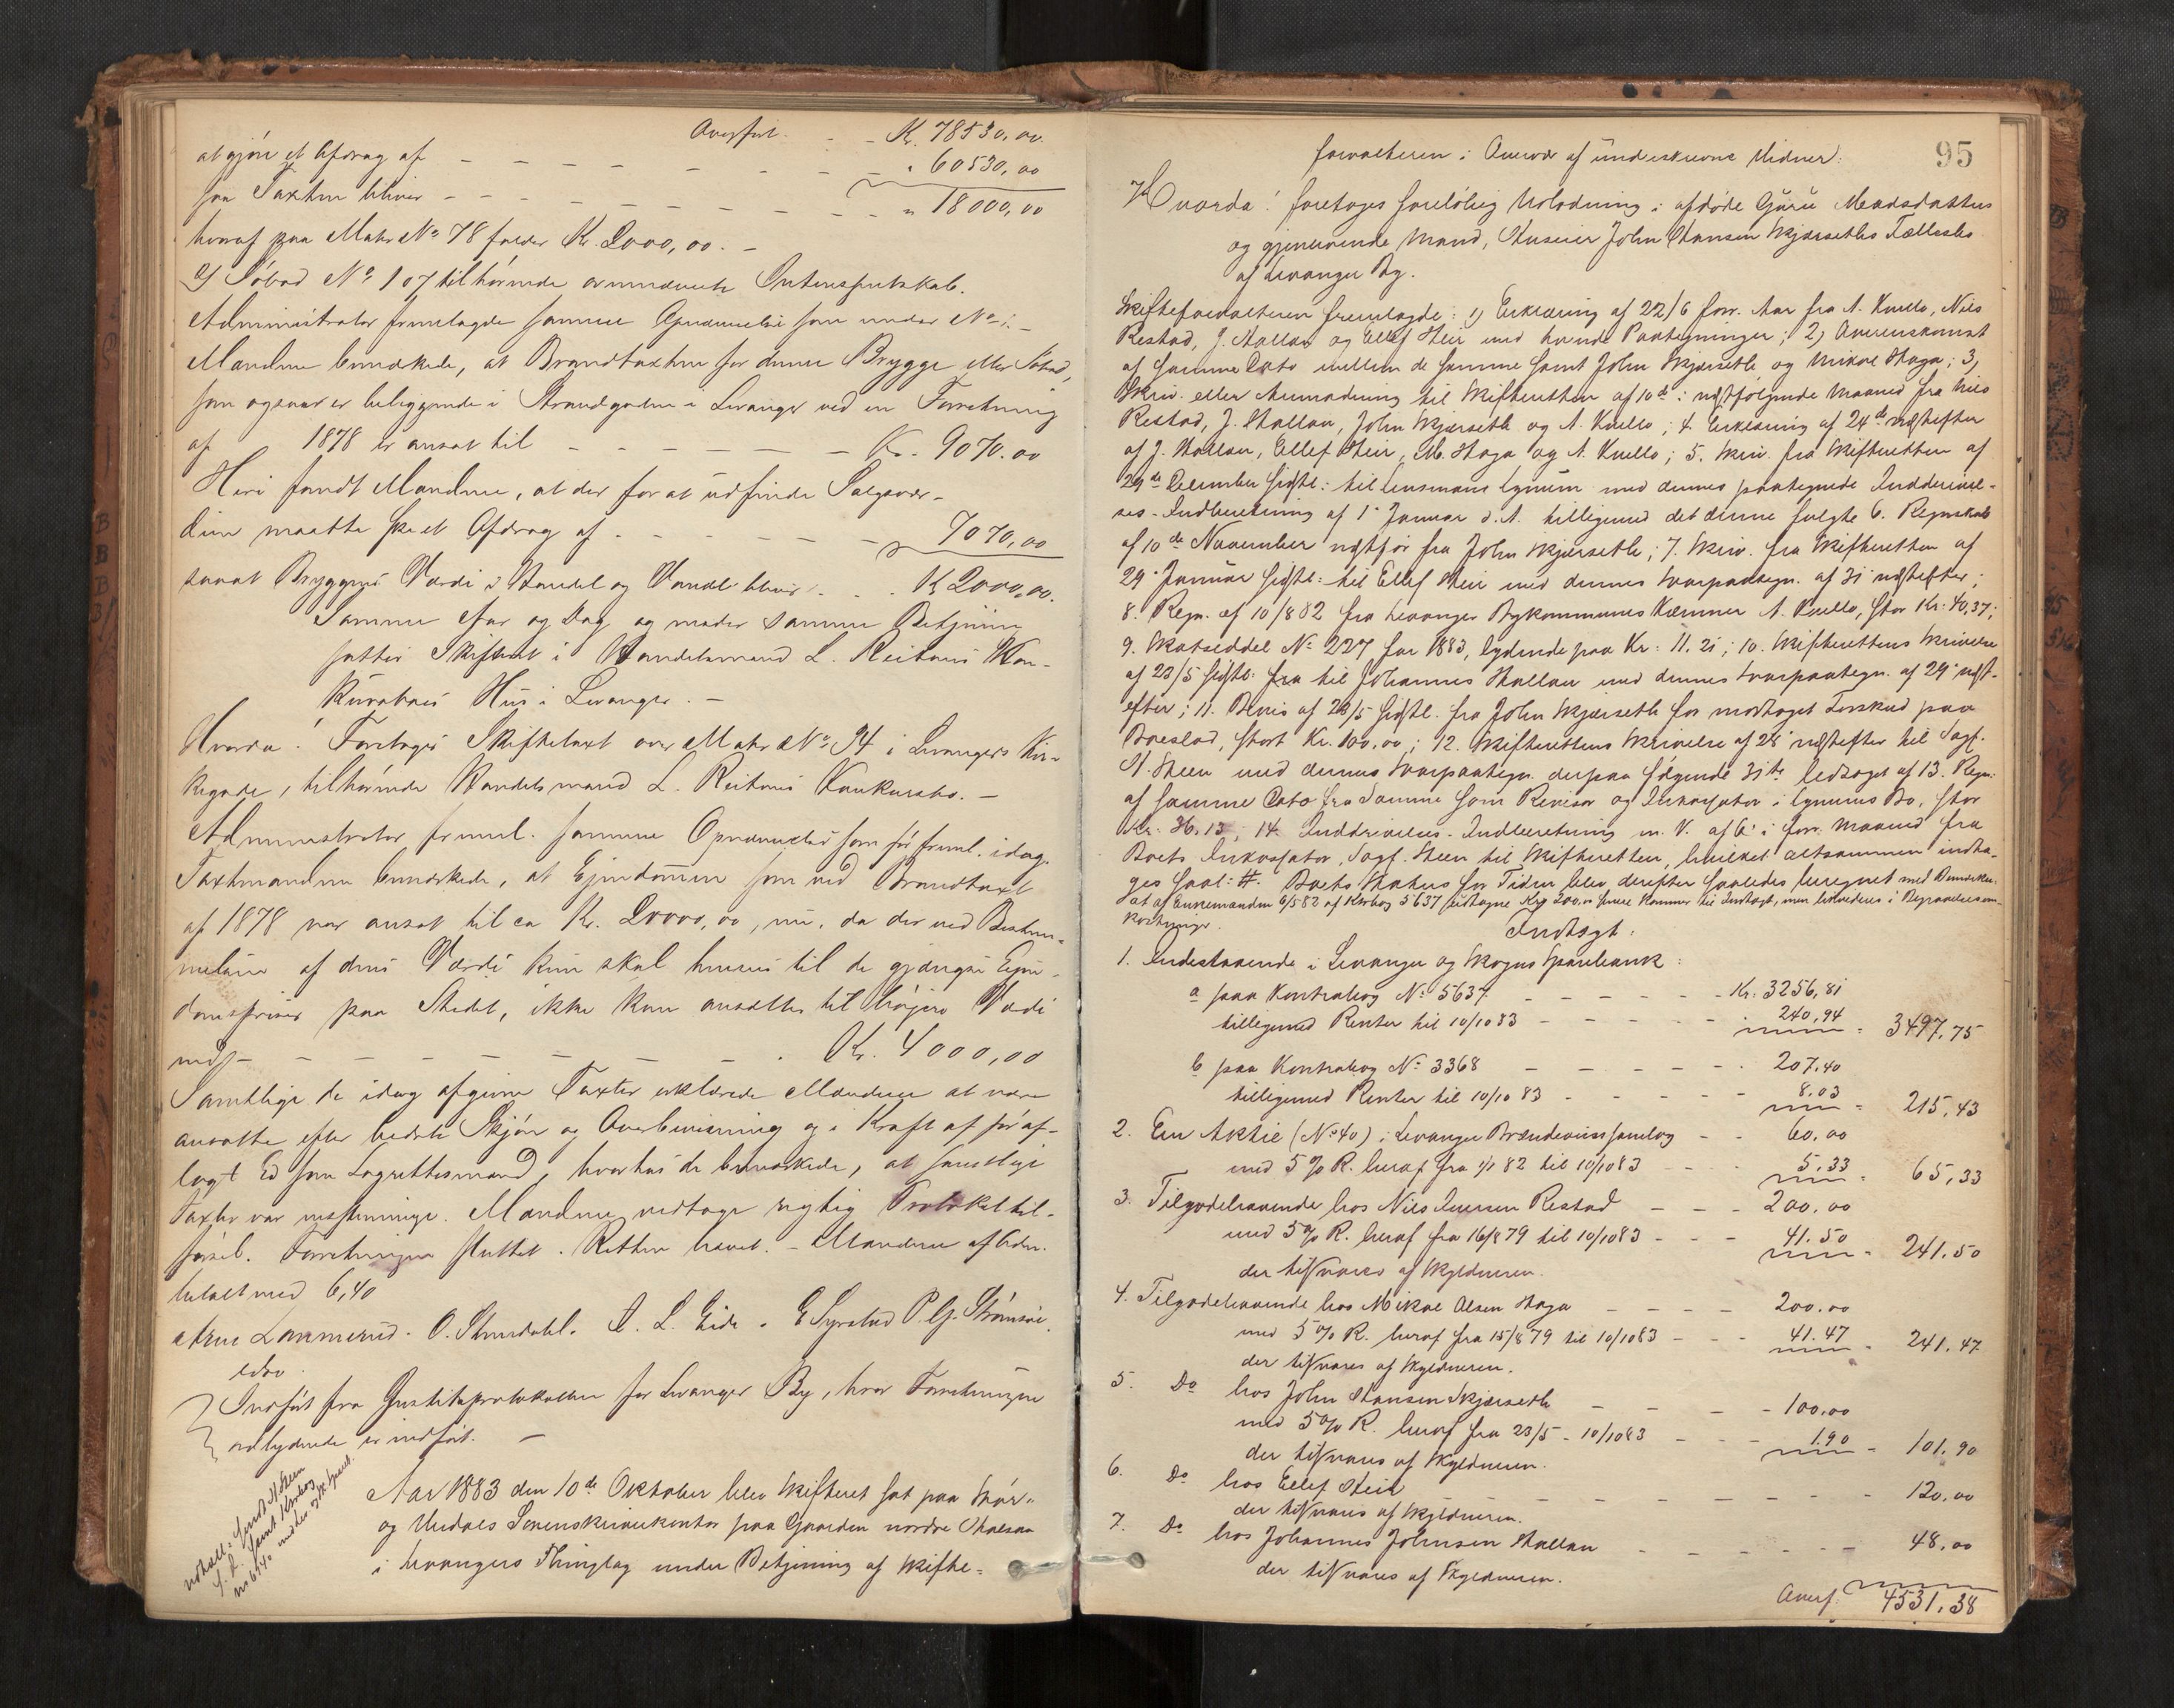 Overført. - - Kr. 78530,00.
at gjøre et Afdrag af - - - - - - - " 60530,00
saa Taxten bliver - - - - - - - - - " 18000,00
hvoraf paa Matr No 78 falder Kr. 2000,00. -
2) Søbod No 107 tilhørende ovennævnte Interessentskab.
Administrator fremlagde samme Opnævnelse som under No 1. -
Mændene bemærkede, at Brandtaxten for denne Brygge eller Søbod,
som ogsaa er beliggende i Strandgaden i Levanger ved en Forretning
af 1878 er ansat til - - - - - Kr. 9070.00
Heri fandt Mændene, at der for at udfinde Salgsvær-
dien maatte ske et Afdrag af - - - - - 7070,00
saaat Bryggens Værdi i Handel og Vandel bliver . . . Kr 2000,00.
Samme Aar og Dag og under samme Betjening
sattes Skifteret i Handelsmand L. Reitans Kon-
kursboes Hus i Levanger. -
Hvorda! Foretoges Skiftetaxt over Matr No 94 i Levangers Kir-
kegade, tilhørende Handelsmand L. Reitans Konkursbo. -
Administrator freml. samme Opnævnelse som før freml. idag.
Taxtmændene bemærkede, at Ejendommen som ved Brandtaxt
af 1878 var ansat til ca Kr. 20000,00, nu, da der ved Bestem-
melsen af dens Værdi kun skal hensees til de gjængse Eien-
domspriser paa Stedet, ikke kan ansættes til højere Værdi
end - - - - - - - . Kr. 4000,00
Samtlige de idag afgivne Taxter erklærede Mændene at være
ansatte efter bedste Skjøn og Overbevisning og i Kraft af før af-
lagt Ed som Lagrettesmænd, hvorhos de bemærkede, at samtlige
Taxter var enstemmige. Mændene vedtoge rigtig Protokoltil-
førsel. Forretningen sluttet. Retten hævet. - Mændene af Adm.
betalt med 6,40
Arne Lommerud. O. Strundahl. A. L. Eide. E Syrstad P. G. Strømsøe.
edsv.
Indført fra Gjestebprotokollen for Levanger By, hvor Forretningen
ordlydende er indført. -
Aar 1883 den 10de Oktober blev Skifteret sat paa Stør-
og Værdals Sorenskriverkontor paa Gaarden nordre Halsan
i Levangers Thinglag under Betjening af Skifte-
95
forvalteren i Overvær af underskrevne Vidner:
Hvorda! foretages foreløbig Udlodning i afdøde Guru Madsdatters
og gjenlevende Mand, Huseier John Hansen Skjærseths Fællesbo
af Levanger By.
Skifteforvalteren fremlagde: 1) Erklæring af 22/6 forr. Aar fra A. Kvello, Nils
Restad, J. Hallan og Ellef Stein med havende Paategninger; 2) Overenskomst
af samme Dato mellem de samme samt John Skjærseth og Mikal Haga; 3)
Skriv. eller Anmodning til Skifteretten af 10de i næstfølgende Maaned fra Nils
Restad, J. Hallan, John Skjærseth og A. Kvello; 4. Erklæring af 24de næstefter
af J. Hallan, Ellef Stein, M. Haga og A. Kvello; 5. Skriv. fra Skifteretten af
29de December sidstl: til Lensmand Lynum med dennes paategnede Inddrivel-
ses-Indberetning af 1 Januar d. A. tilligemed det denne fulgte 6. Regnskab
af 10de November næstfør fra John Skjærseth; 7. Skriv. fra Skifteretten af
29 Januar sidstl: til Ellef Stein med dennes Svarpaategn. af 31 næstefter;
8. Regn. af 10/8 82 fra Levanger Bykommunes Kæmner A. Kvello, stor Kr: 40,37;
9. Skatseddel No 227 for 1883, lydende paa Kr: 11.21; 10. Skifterettens Skrivelse
af 23/5 sidstl: fra til Johannes Hallan med dennes Svarpaategn. af 29 næst-
efter; 11. Bevis af 23/5 sidstl. fra John Skjærseth for modtaget Forskud paa
Boeslod, stort Kr. 100,00; 12. Skifterettens Skrivelse af 28 næstefter til Sagf.
St. Steen med dennes Svarpaategn. derpaa følgende 31te ledsaget af 13. Regn:
af samme Dato fra Samme som Revisor og Inkassator i Lynums Bo, stor
Kr. 36.13; 14. Inddrivelses-Indberetning m. V. af 6 i forr. Maaned fra
Boets Inkassator, Sagf. Steen til Skifteretten, hvilket altsammen indta-
ges saal: #. Boets Status for Tiden blev derefter saaledes beregnet med Bemærkn.
at af Enkemanden 6/5 82 af Ktrbog 5637 udtagne Kr 200,00 senere kommer til Indtægt, men liqvideres i Begravelsesom-
kostninger.
Indtægt:
1. Indestaaende i Levanger og Skogns Sparebank:
a paa Kontrabog No 5637 - - - - - Kr. 3256,81
tilligemed Renter til 10/10 83 - - - - - 240,94 = 3497,75
b paa Kontrabog No 3368 - - - - - 207,40
tilligemed Renter til 10/10 83 - - - - - 8,03 = 215,43
2. En Aktie (No 40) i Levanger Brændevinssamlag - - 60,00
med 5 % R. heraf fra 1/1 82 til 10/10 83 - - - 5,33 = 65,33
3. Tilgodehavende hos Nils Iversen Restad - - - 200.00
med 5 % R. heraf fra 16/8 79 til 10/10 83 - - - 41.50 = 241.50
der tilsvares af Skyldneren.
4. Tilgodehavende hos Mikal Olsen Haga - - - - 200.00
med 5 % R. heraf fra 15/8 79 til 10/10 83 - - - 41.47 = 241.47
der tilsvares af Skyldneren.
5. Do hos John Hansen Skjærseth - - - - - 100,00
med 5 % R. heraf fra 23/5 - 10/10 83 - - - 1.90 = 101,90
der tilsvares af Skyldneren.
6. Do hos Ellef Stein - - - - - - - - - 120,00
der tilsvares af Skyldneren.
7. Do hos Johannes Johnsen Hallan - - - - - 48,00
der tilsvares af Skyldneren.
Overf. 4531,38